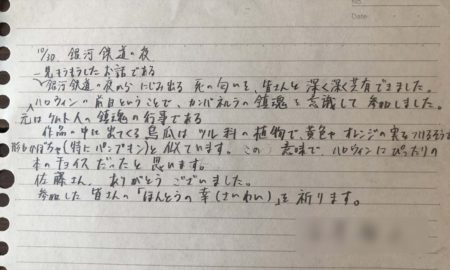 No.
Date
10/30. 銀河鉄道の夜
銀河鉄道の夜から にじみ出る 死の匂いを、皆さんと 深く深く共有できました。
ハロウィンの前日ということで、カンパネルラの鎮魂を意識して 参加しました。
元はケルト人の鎮魂の行事である
作品の中に出てくる烏瓜は ツル科の植物で、黄色や オレンジの実を
かぼちゃ(特にパンプキン)と似ています。この意味で、ハロウィンにぴったりの
本のチョイスだったと思います。
佐藤さん、ありがとうございました。
参加した皆さんの「ほんとうの幸(さいわい)」を祈ります。